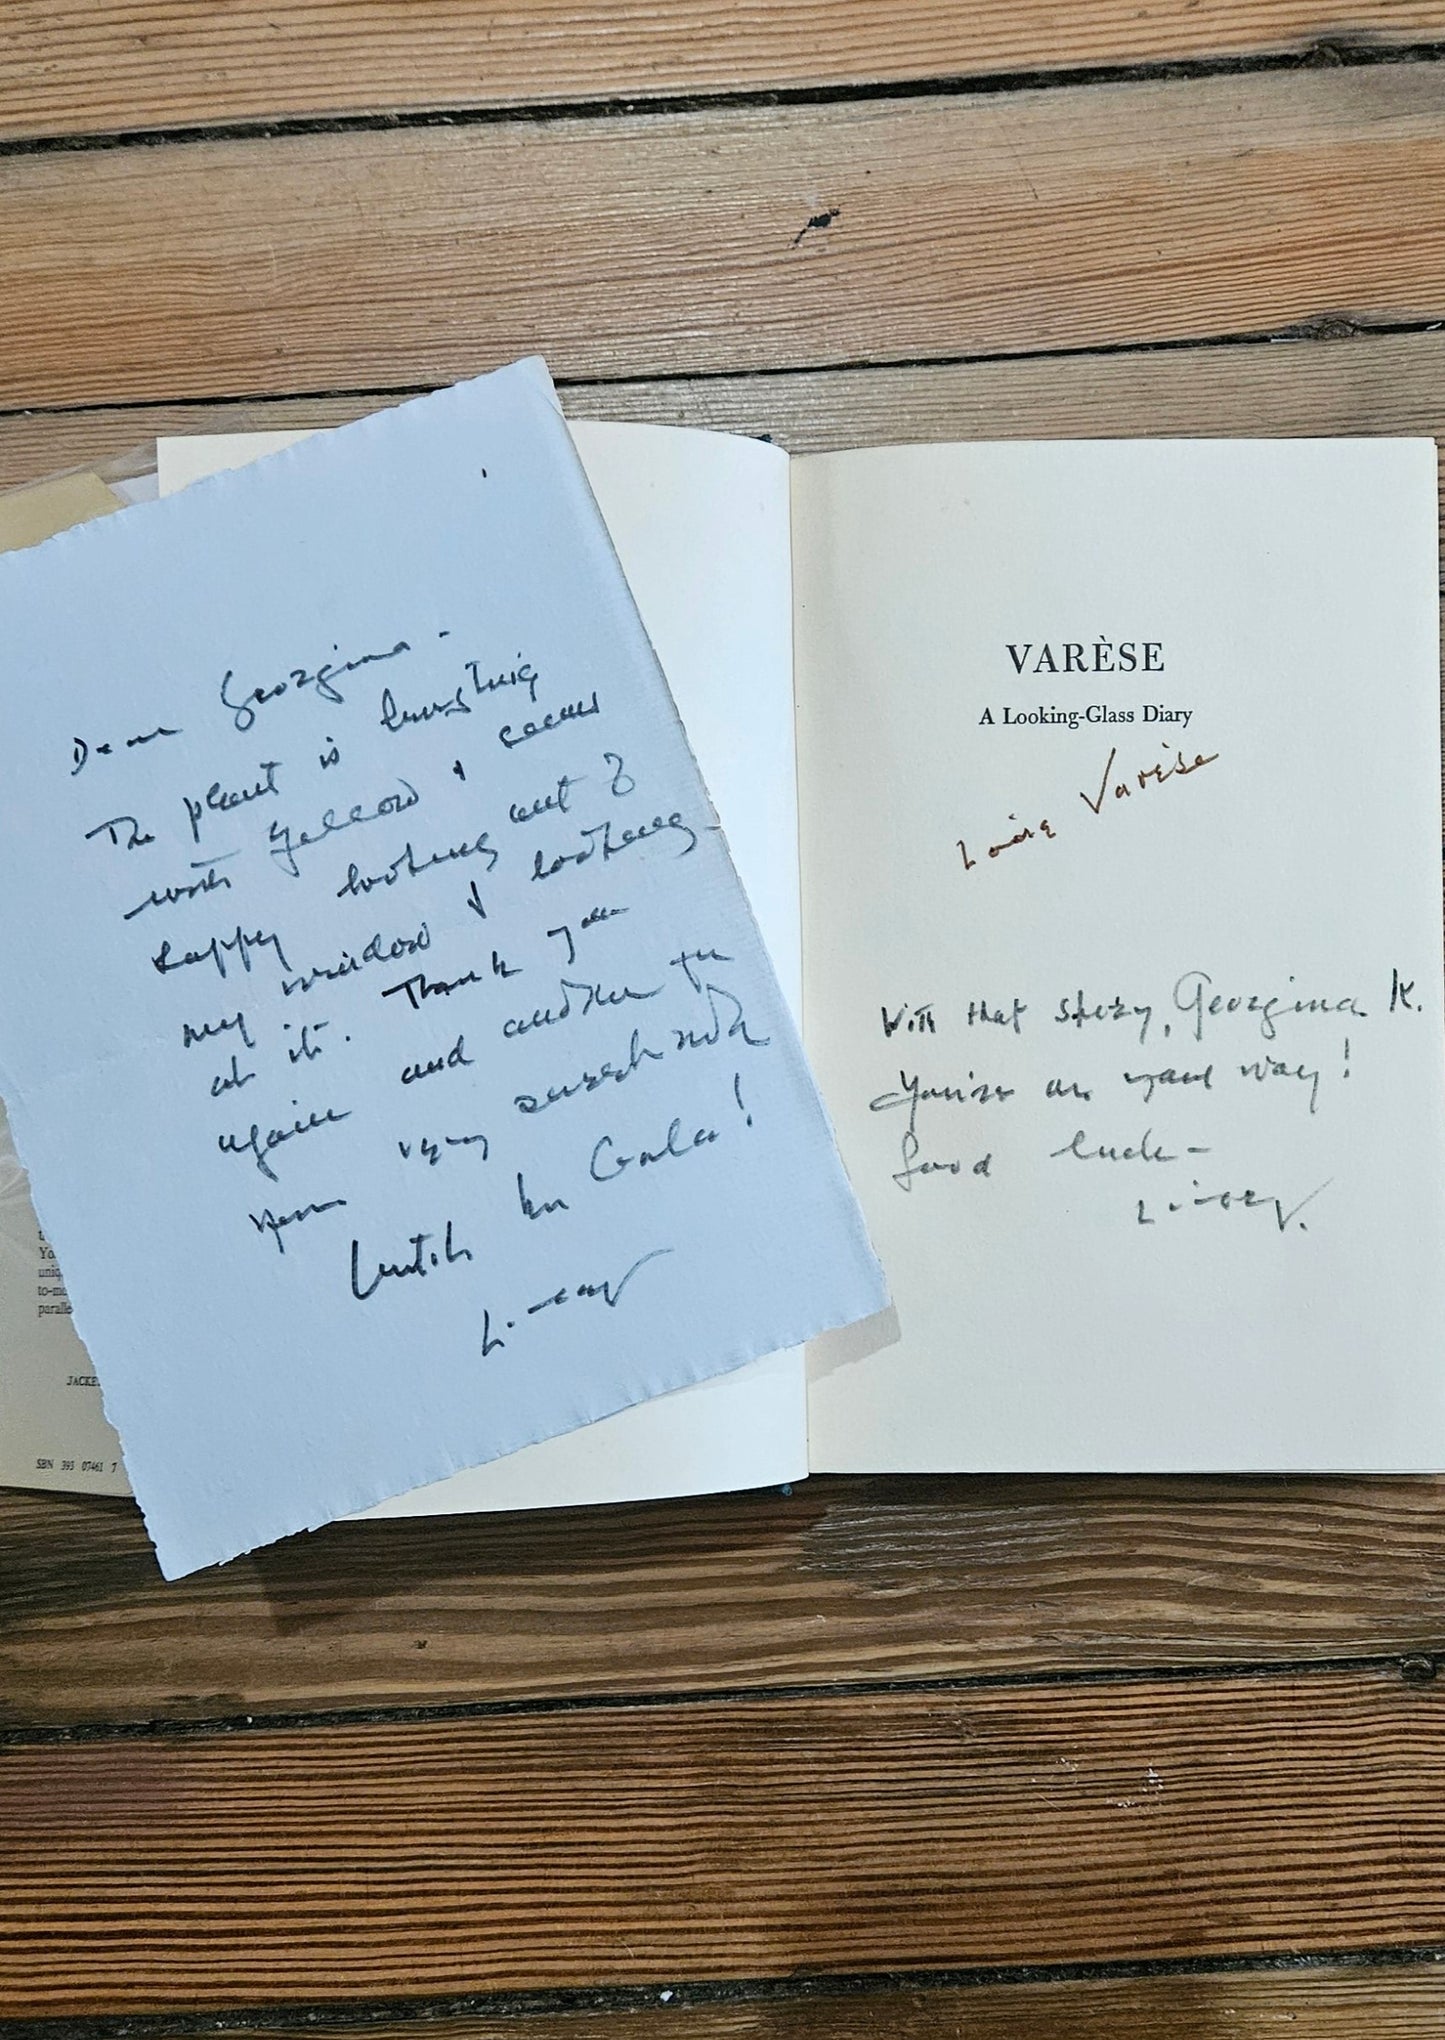 Dear Georgina -
The plant is bursting
with yellow & seems
happy looking out of
my window & looking
at it. Thank you
again and another for
your very
with Gala!

VARÈSE
A Looking-Glass Diary
Louise Varèse
With that story, Georgina K.
You're on your way!
Good luck -

to-mo
paralle
JACKE
SBN 393 07461 7